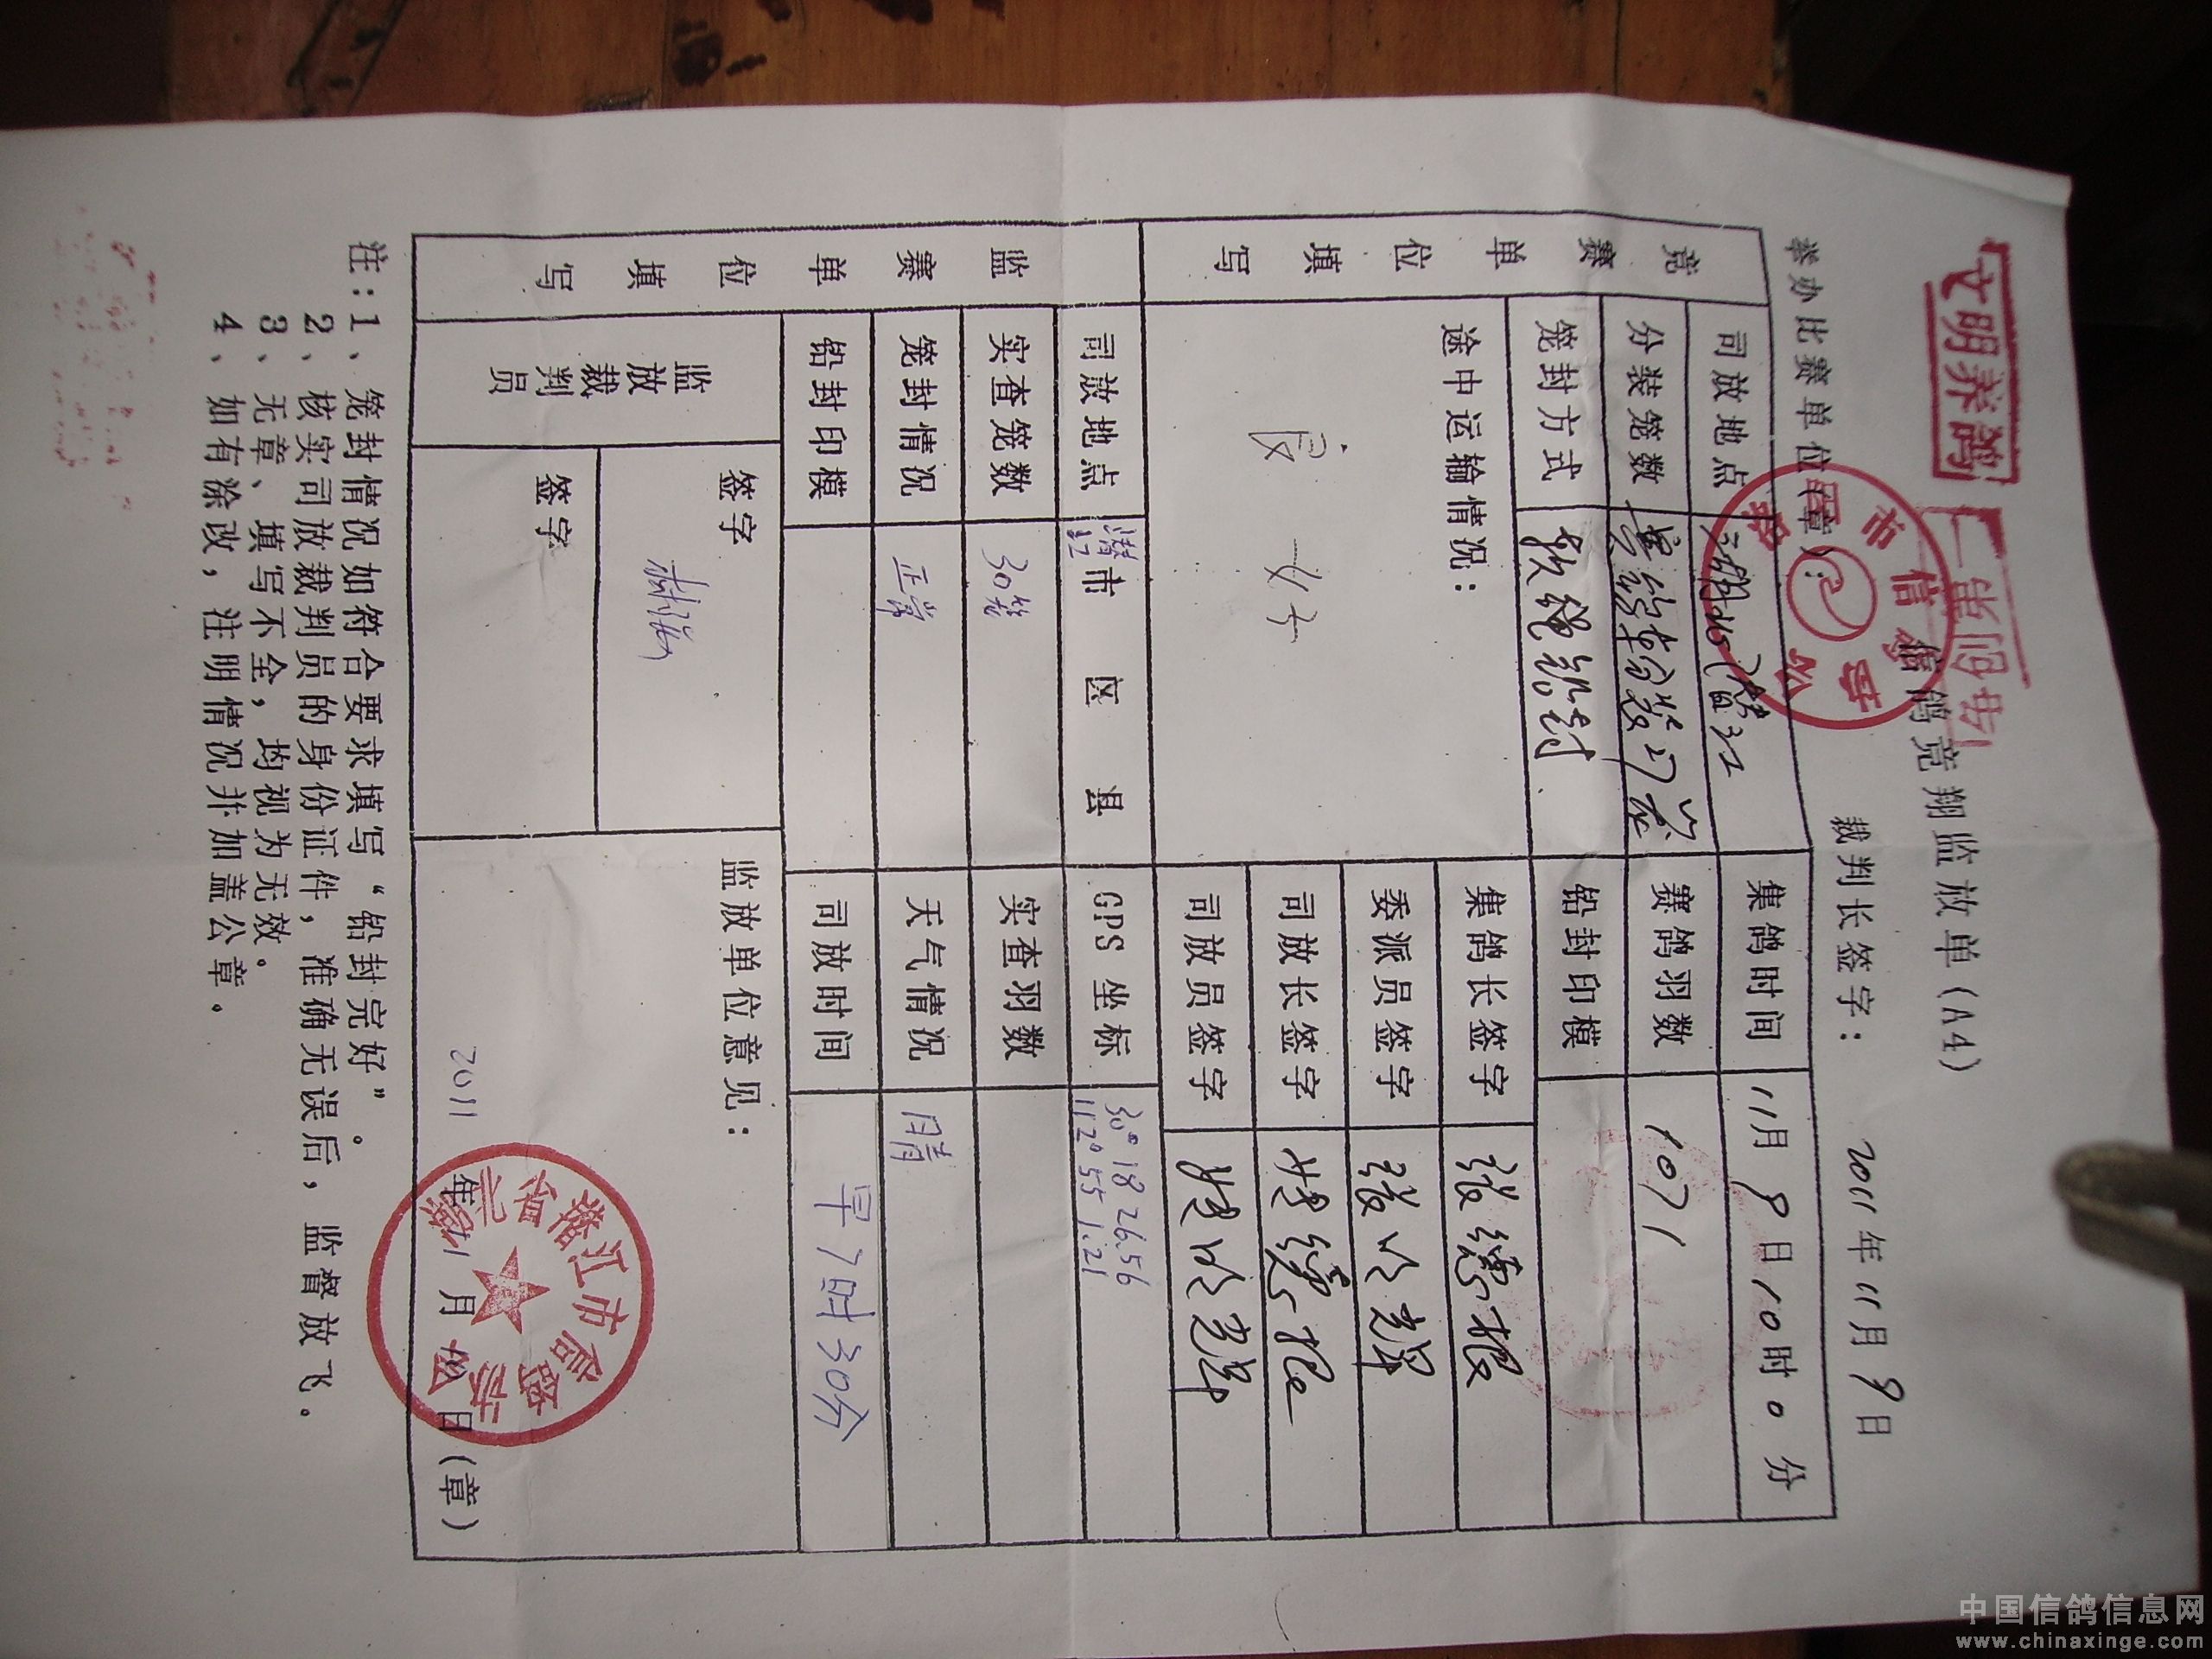 文明养鸽
信鸽竞翔监放单(A4)
举办比赛单位(章): 裁判长签字: 2011年11月9日
竞赛单位填写
司放地点 湖北潜江 集鸽时间 11月9日10时0分
分装笼数 赛鸽羽数 1071
笼封方式 铅封 铅封印模
途中运输情况:
良好
集鸽长签字
委派员签字
司放长签字
司放员签字
监赛单位填写
司放地点 潜江市 区 县 GPS坐标 30° 18 26.56
112° 55 1.21
实查笼数 30笼 实查羽数
笼封情况 正常 天气情况 晴
铅封印模 司放时间 早7时30分
监放裁判员 签字 监放单位意见:
签字
2011年11月 日(章)
湖北省潜江市信鸽协会
注:1、笼封情况如符合要求填写“铅封完好”。
2、核实司放裁判员的身份证件,准确无误后,监督放飞。
3、无章、填写不全,均视为无效。
4、如有涂改,注明情况并加盖公章。
中国信鸽信息网
www.chinaxinge.com